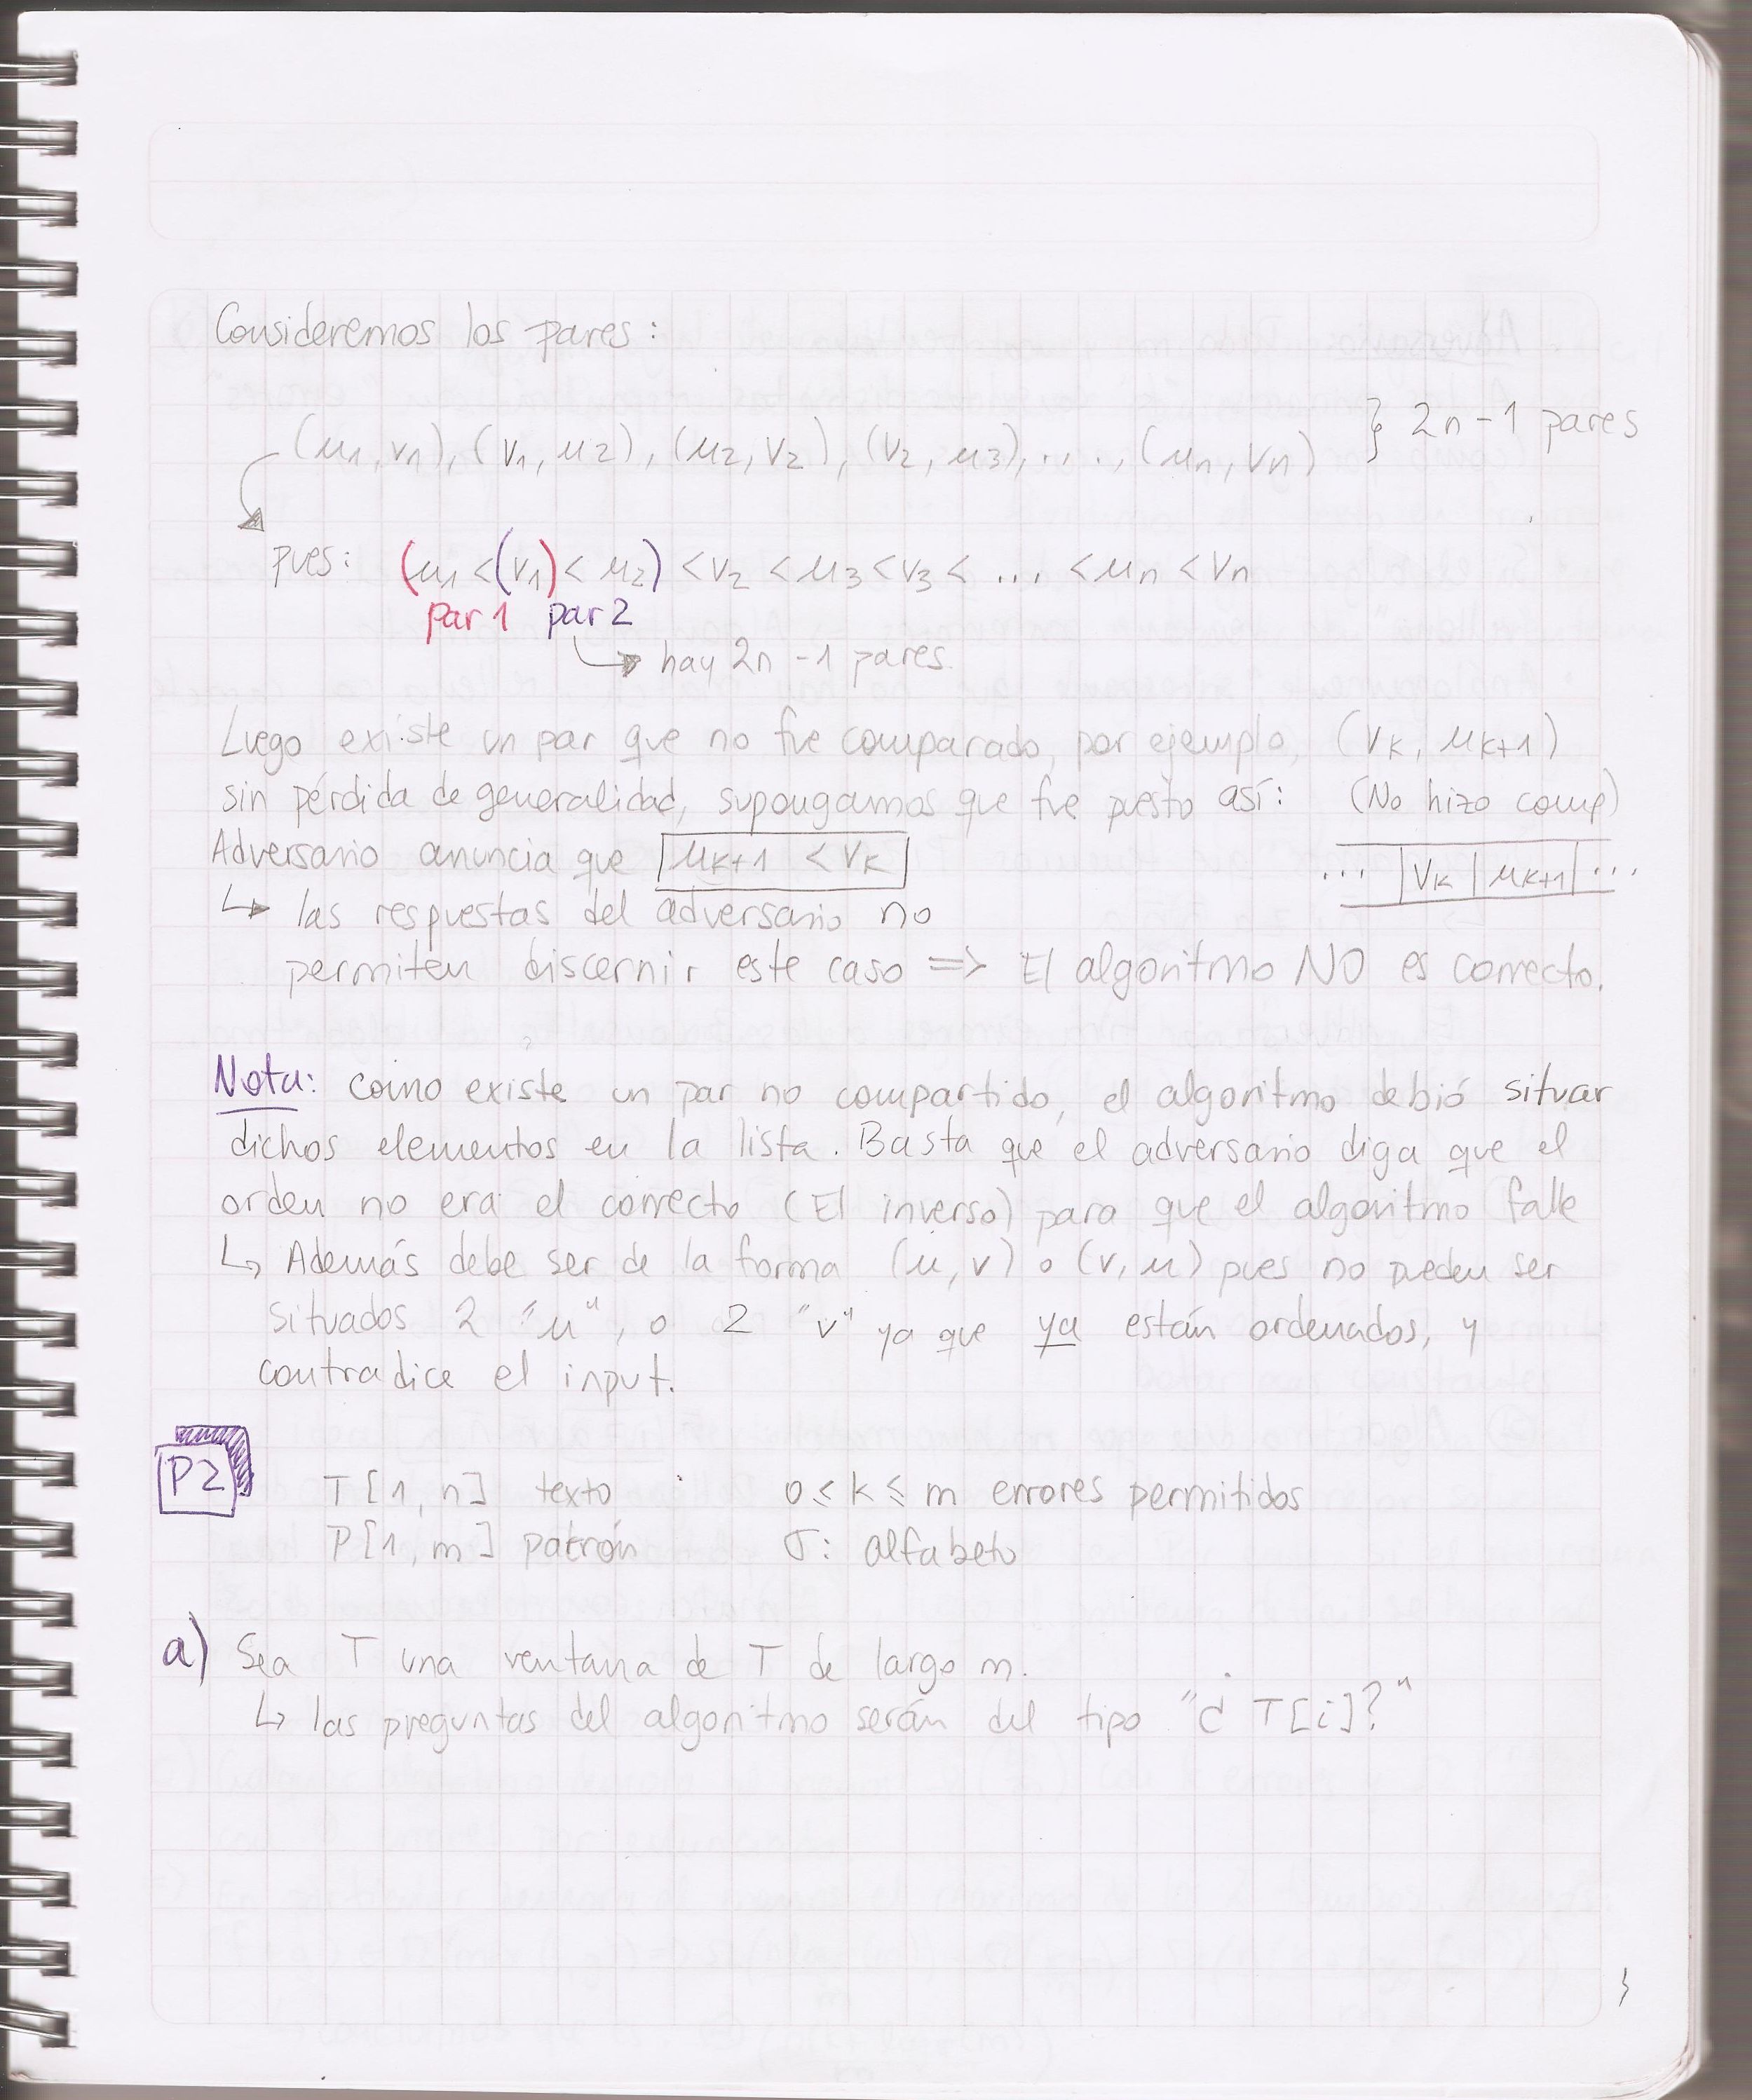 Consideremos los pares:
(u1, v1), (v1, u2), (u2, v2), (v2, u3), ..., (un, vn) } 2n-1 pares
pues: (u1 < (v1) < u2) < v2 < u3 < v3 < ... < un < vn
par 1 par 2
↳ hay 2n-1 pares.
Luego existe un par que no fue comparado, por ejemplo, (vk, uk+1)
sin pérdida de generalidad, supongamos que fue puesto así: (No hizo comp)
Adversario anuncia que uk+1 < vk ... | vk | uk+1 | ...
↳ las respuestas del adversario no
permiten discernir este caso => El algoritmo NO es correcto.
Nota: como existe un par no compartido, el algoritmo debió situar
dichos elementos en la lista. Basta que el adversario diga que el
orden no era el correcto (El inverso) para que el algoritmo falle
↳ Además debe ser de la forma (u, v) o (v, u) pues no pueden ser
situados 2 "u", o 2 "v" ya que ya están ordenados, y
contradice el input.
P2
T[1, n] texto 0 ≤ k ≤ m errores permitidos
P[1, m] patrón σ: alfabeto
a) Sea T una ventana de T de largo m.
↳ las preguntas del algoritmo serán del tipo "¿T[i]?"